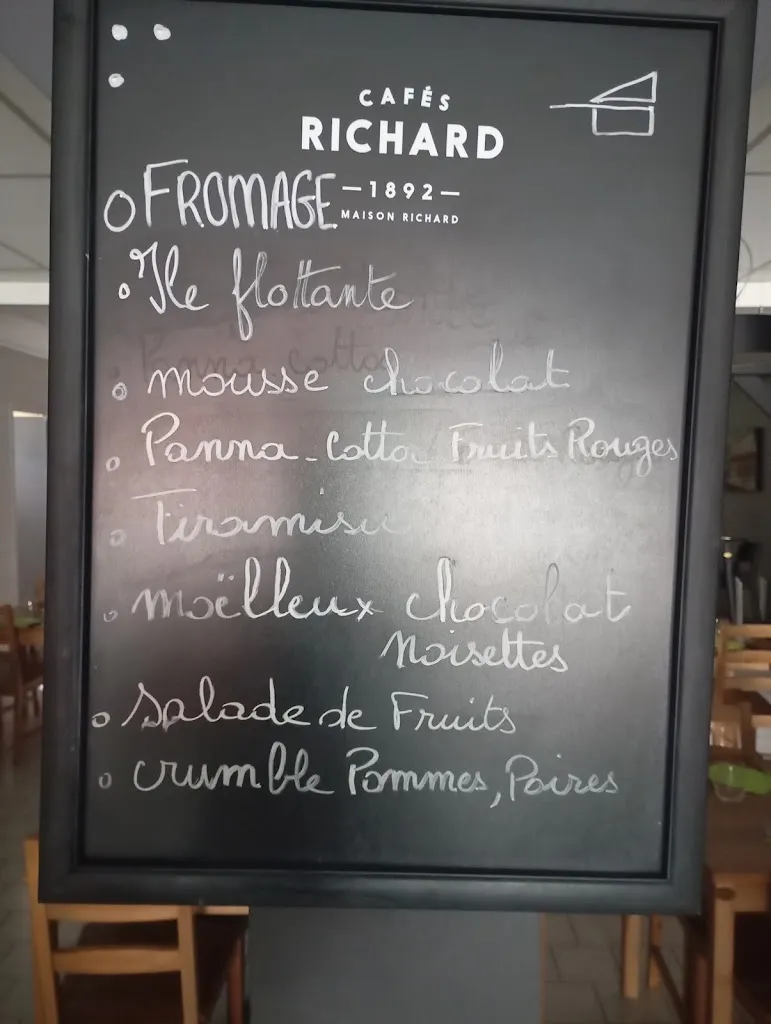 CAFÉS
RICHARD
— 1892 —
MAISON RICHARD
FROMAGE
Ile flottante
mousse chocolat
Panna-Cotta Fruits Rouges
Tiramisu
moëlleux chocolat
Noisettes
Salade de Fruits
crumble Pommes, Poires